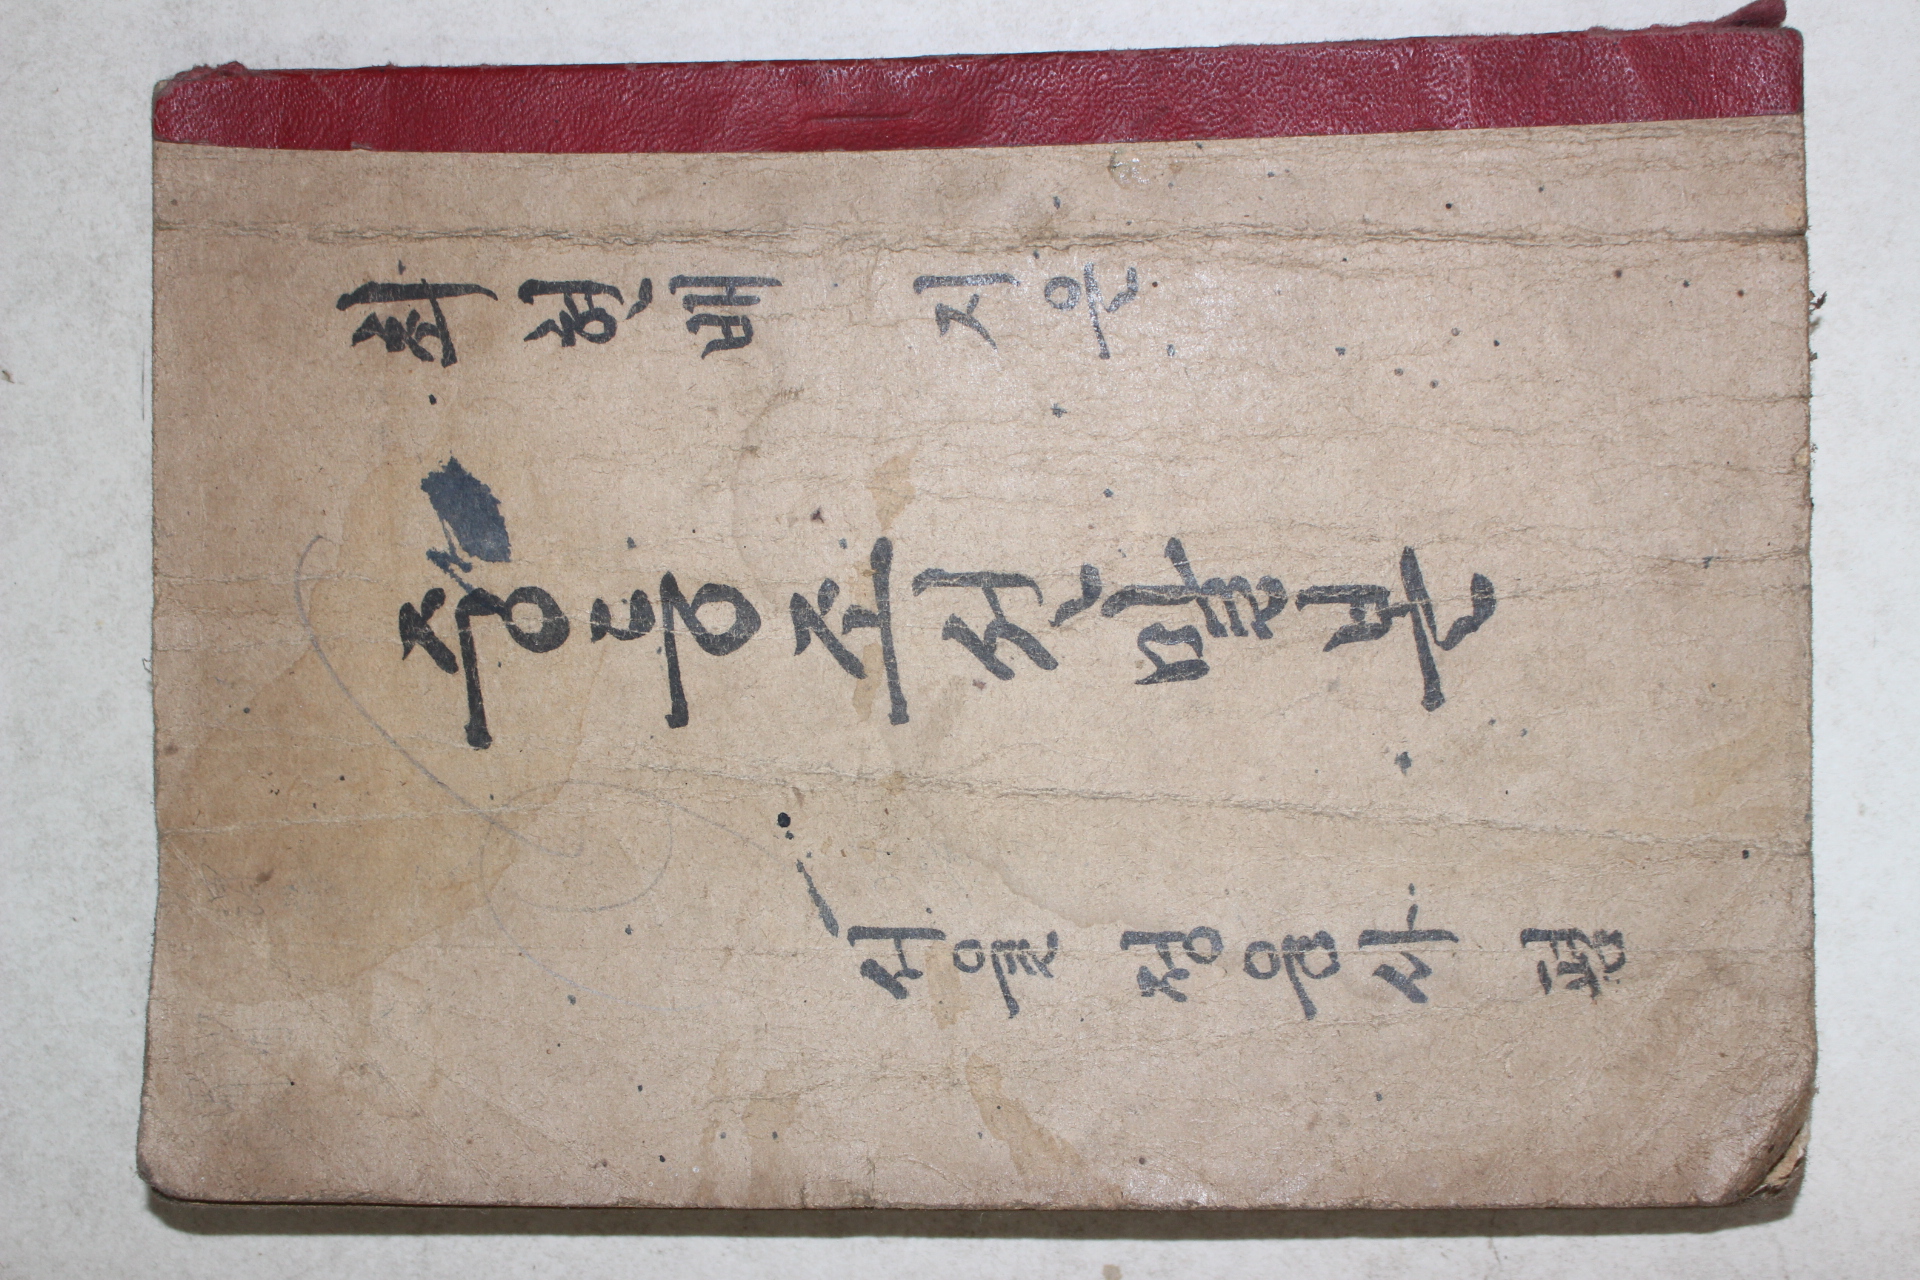 최현배 지은
중등조선말본
서울 정음사 펌